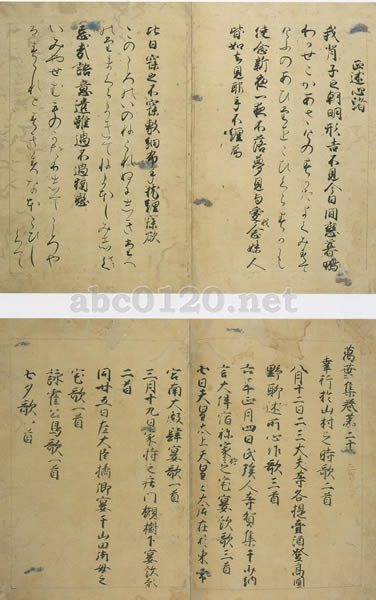 正述心緒
我背子之朝明形吉不見今日間戀暮鴨
わかせこかあさけのすかたよくみすて
けふのあひたをこひくらすかも
念新夜一夜不落夢見与愛我念妹人
皆如去見耶手不纏為
比日寐之不寐敷細布手枕纏寐欲
このころのいのねられぬにしきたへ
忘哉語意遣雖過不過猶戀
abc0120.net
萬葉集巻第二十
幸行於山村之時歌二首
八月十二日二三大夫等各提壷酒登高圓
野聊述所心作歌三首
六年正月四日氏族人等賀集于少納
言大伴宿祢家持之宅宴飲歌三首
七日天皇太上天皇皇大后在於東常
宮南大殿肆宴歌一首
三月十九日家持之庄門槻樹下宴飲歌
二首
同廿五日左大臣橘卿宴于山田御母之
宅歌一首
詠霍公鳥歌一首
七夕歌八首